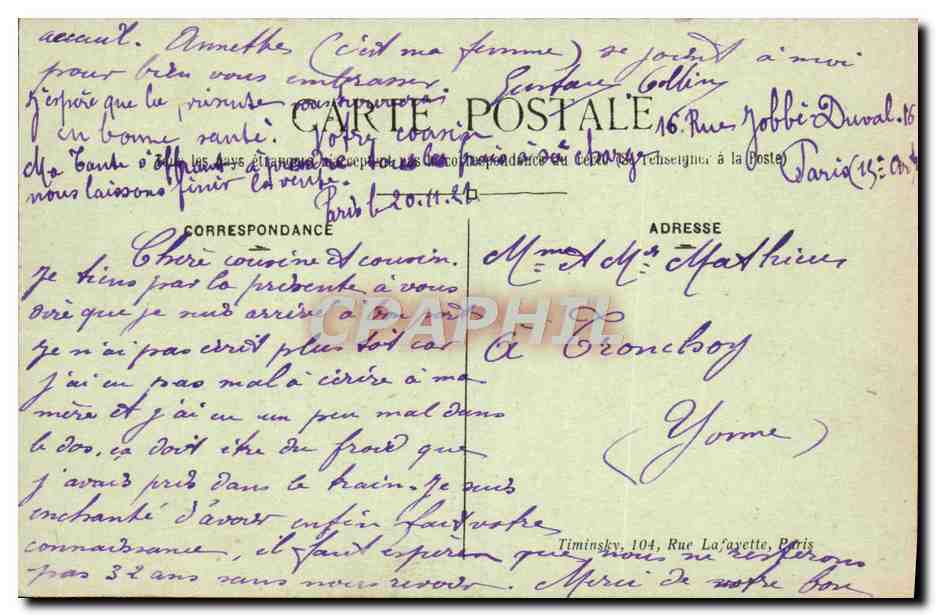 Paris le 20.11.21
Chère cousine et cousin.
Je tiens par la présente à vous
dire que je suis arrivé à bon port
Je n'ai pas écrit plus tôt car
j'ai eu pas mal à écrire à ma
mère et j'ai eu un peu mal dans
le dos, ça doit être du froid que
j'avais pris dans le train. Je suis
enchanté d'avoir enfin fait votre
connaissance, il faut espérer que nous ne resterons
pas 32 ans sans nous revoir. Merci de votre bon
accueil. Annette (c'est ma femme) se joint à moi
pour bien vous embrasser
Gustave Collin
J'espère que la présente vous trouvera
en bonne santé. Votre cousin
16 Rue Jobbé-Duval. 16
Paris (15e Arr)
Ma Tante s'offrant à
nous laissons finir la vente.
CARTE POSTALE
CORRESPONDANCE
ADRESSE
Mme et Mr Mathieu
à Tronchoy
(Yonne)
Timinsky, 104, Rue Lafayette, Paris
CPAPHIL